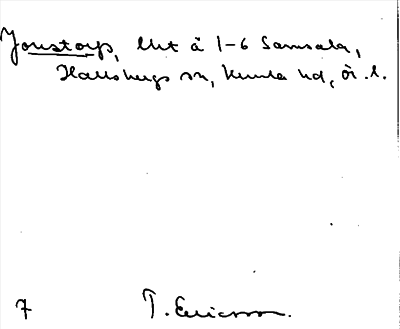 Jonstorp, lht å 1-6 Samsala,
Hallsbergs sn, Kumla hd, Ör. l.
7 T. Ericsson.